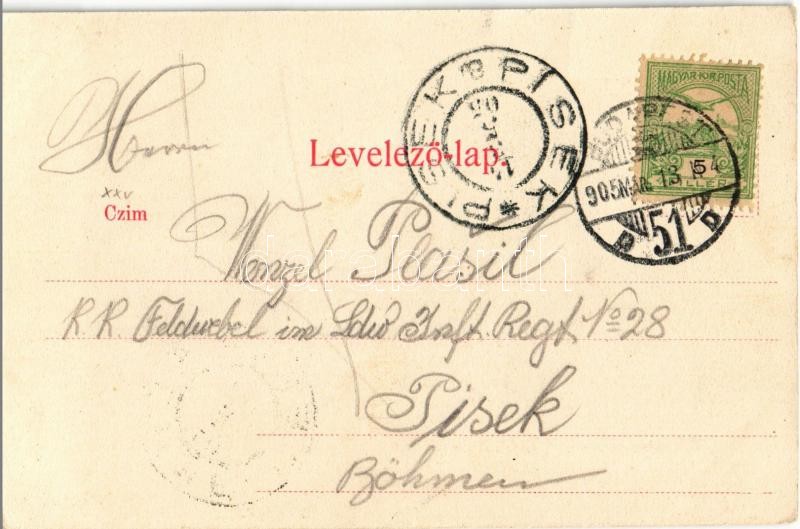 MAGYAR KIR. POSTA
5
BUDAPEST
905 MAR. 13
51
D D
PISEK PÍSEK
Levelező-lap.
Herrn
XXV
Czim
Wenzel Plasil
K. K. Feldwebel im Ldw Inft Regt No 28
Pisek
Böhmen